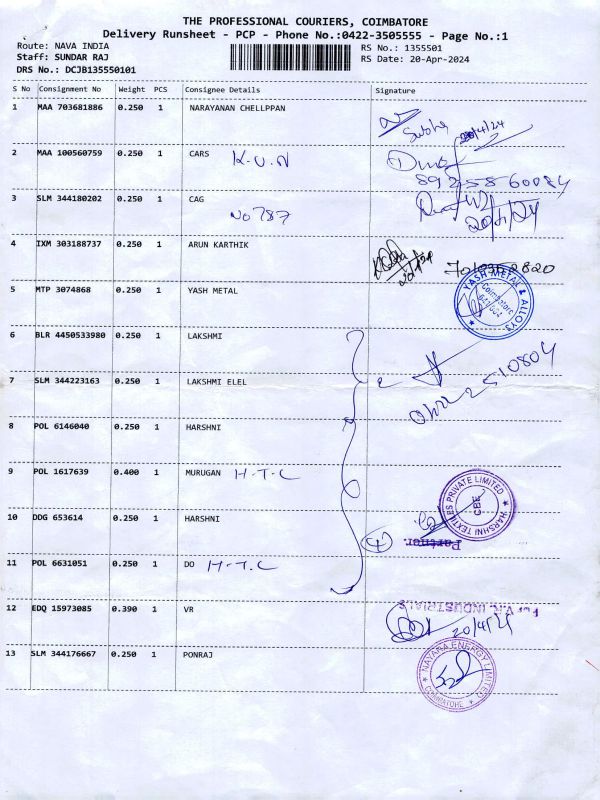 THE PROFESSIONAL COURIERS, COIMBATORE
Delivery Runsheet - PCP - Phone No.:0422-3505555 - Page No.:1
Route: NAVA INDIA RS No.: 1355501
Staff: SUNDAR RAJ RS Date: 20-Apr-2024
DRS No.: DCJB135550101
S No Consignment No Weight PCS Consignee Details Signature
1 MAA 703681886 0.250 1 NARAYANAN CHELLPPAN
Subha 20/4/24
2 MAA 100560759 0.250 1 CARS K.U.N
89258 60084
3 SLM 344180202 0.250 1 CAG
NO 787 20/4/24
4 IXM 303188737 0.250 1 ARUN KARTHIK
5 MTP 3074868 0.250 1 YASH METAL
YASH METAL & ALLOYS
Coimbatore
6 BLR 4450533980 0.250 1 LAKSHMI
7 SLM 344223163 0.250 1 LAKSHMI ELEL
2510804
8 POL 6146040 0.250 1 HARSHNI
9 POL 1617639 0.400 1 MURUGAN H.T.C
HARSHNI TEXTILES PRIVATE LIMITED
CBE
10 DDG 653614 0.250 1 HARSHNI
4 Partner.
11 POL 6631051 0.250 1 DO H.T.C
12 EDQ 15973085 0.390 1 VR
For V.R. INDUSTRIALS
20/4/24
13 SLM 344176667 0.250 1 PONRAJ
NAYARA ENERGY LIMITED
COIMBATORE